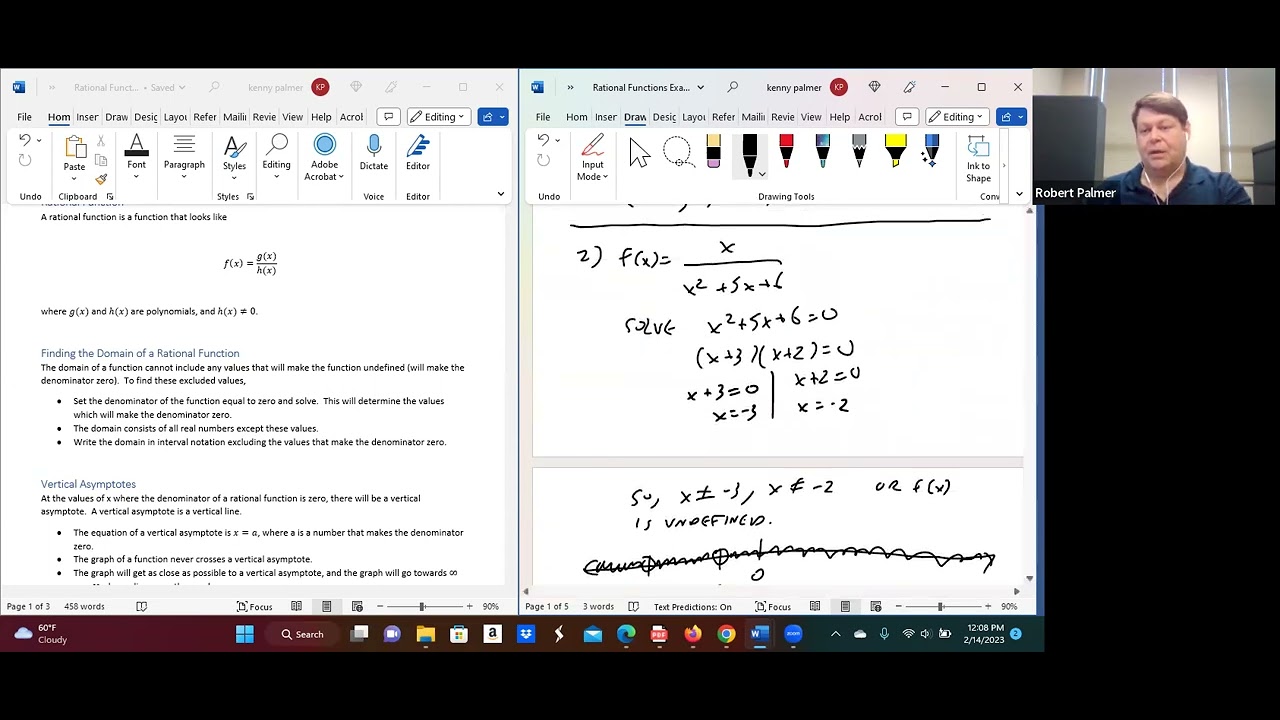 Rational Funct... • Saved
kenny palmer
KP
File Hom Inser Draw Desig Layou Refer Mailin Revie View Help Acrol
Editing
Paste
Font
Paragraph
Styles
Editing
Adobe Acrobat
Dictate
Editor
Undo
Clipboard
Styles
Voice
Adobe Acrobat
Editor
A rational function is a function that looks like
f(x) = g(x)/h(x)
where g(x) and h(x) are polynomials, and h(x) ≠ 0.
Finding the Domain of a Rational Function
The domain of a function cannot include any values that will make the function undefined (will make the
denominator zero). To find these excluded values,
• Set the denominator of the function equal to zero and solve. This will determine the values
which will make the denominator zero.
• The domain consists of all real numbers except these values.
• Write the domain in interval notation excluding the values that make the denominator zero.
Vertical Asymptotes
At the values of x where the denominator of a rational function is zero, there will be a vertical
asymptote. A vertical asymptote is a vertical line.
• The equation of a vertical asymptote is x = a, where a is a number that makes the denominator
zero.
• The graph of a function never crosses a vertical asymptote.
• The graph will get as close as possible to a vertical asymptote, and the graph will go towards ∞
Page 1 of 3 458 words Focus 90%
Rational Functions Exa...
kenny palmer
KP
File Hom Inser Draw Desig Layou Refer Mailin Revie View Help Acrol
Editing
Input Mode
Ink to Shape
Undo
Drawing Tools
Conv
2) f(x)= x / x² +5x+6
SOLVE x²+5x+6=0
(x+3)(x+2)=0
x+3=0 | x+2=0
x=-3 | x=-2
SO, x≠-3, x≠-2 OR f(x)
IS UNDEFINED.
0
Page 1 of 5 3 words Text Predictions: On Focus 90%
Robert Palmer
60°F
Cloudy
Search
12:08 PM
2/14/2023
2